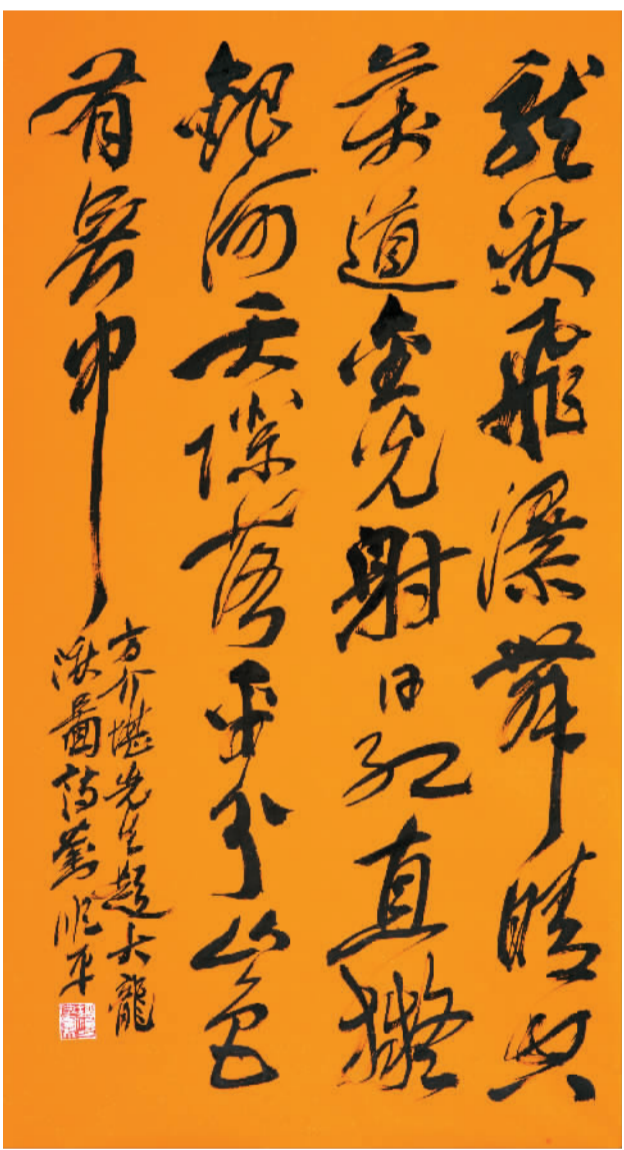 龍湫飛瀑舞晴空
萬道金光射日紅直擬
銀河天際落平分山色
有無中
方介堪先生題大龍
湫圖詩劉順平